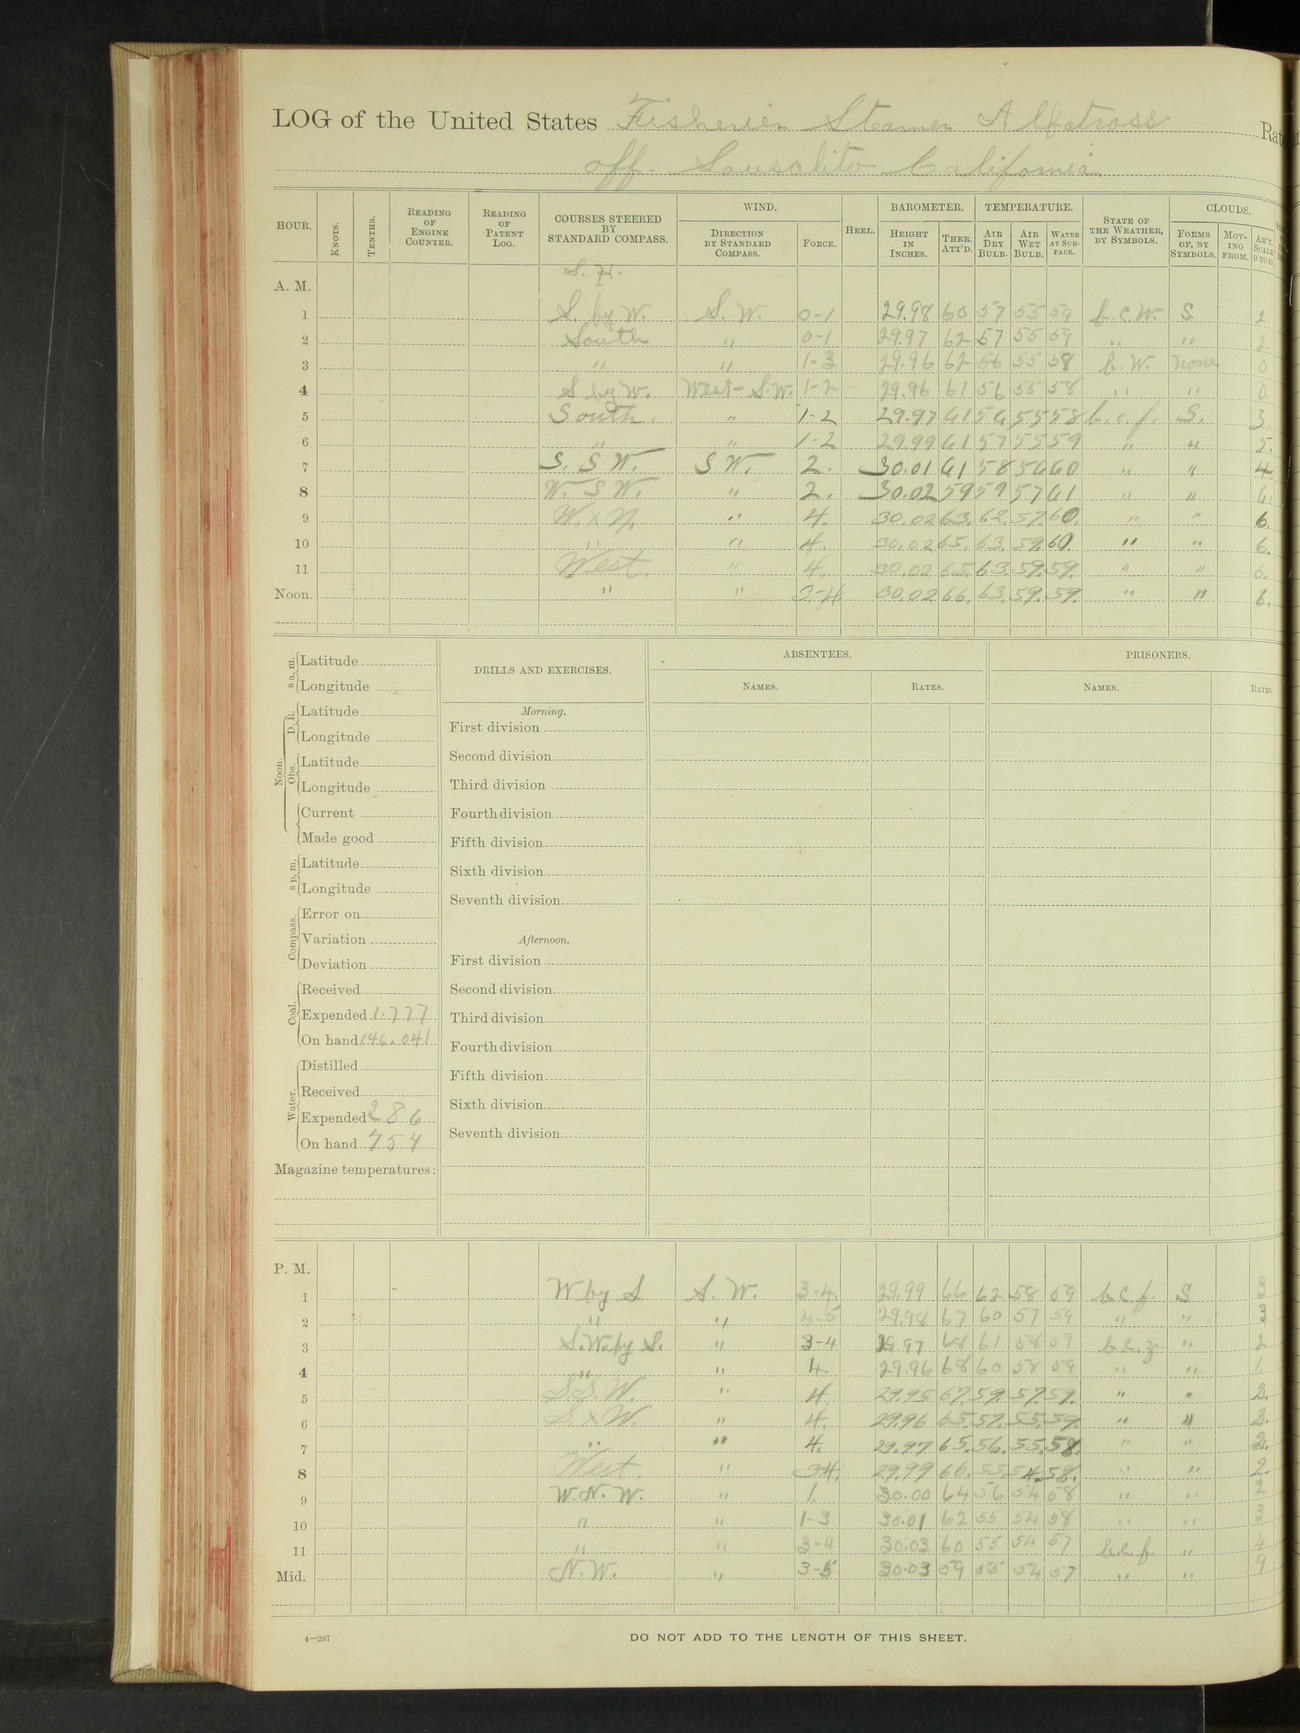 LOG of the United States Fisheries Steamer Albatross Rate
off. Sausalito California
HOUR. KNOTS. TENTHS. READING OF ENGINE COUNTER. READING OF PATENT LOG. COURSES STEERED BY STANDARD COMPASS. WIND. DIRECTION BY STANDARD COMPASS. FORCE. HEEL. BAROMETER. HEIGHT IN INCHES. THER. ATT'D. TEMPERATURE. AIR DRY BULB. AIR WET BULB. WATER AT SURFACE. STATE OF THE WEATHER, BY SYMBOLS. CLOUDS. FORMS OF, BY SYMBOLS. MOVING FROM. AM'T, SCALE 0 TO 10.
S. H.
A. M.
1 S. by W. S. W. 0-1 29.98 60 57 55 59 b.c.w. S. 2
2 South " 0-1 29.97 62 57 55 59 " " 2
3 " " 1-3 29.96 62 56 55 58 b.w. none 0
4 S by W. West-S.W. 1-2 29.96 61 56 55 58 " " 0
5 South. " 1-2 29.97 61 56 55 58 b.c.f. S. 3
6 " " 1-2 29.99 61 57 55 59 " " 5.
7 S. S W. S W. 2. 30.01 61 58 56 60 " " 4.
8 W. S W. " 2. 30.02 59 59 57 61 " " 6.
9 W. x N. " 4. 30.02 63. 62. 57. 60. " " 6.
10 " " 4. 30.02 65. 63. 59. 60. " " 6.
11 West. " 4. 30.02 65. 63. 59. 59. " " 6.
Noon. " " 3-4 30.02 66. 63. 59. 59. " " 6.
DRILLS AND EXERCISES. ABSENTEES. PRISONERS.
NAMES. RATES. NAMES. RATES.
8 a. m. Latitude
Longitude
Noon. D. R. Latitude
Longitude
Obs. Latitude
Longitude
Current
Made good
8 p. m. Latitude
Longitude
Compass. Error on
Variation
Deviation
Coal. Received
Expended 1.777
On hand 146.041
Water. Distilled
Received
Expended 286
On hand 754
Magazine temperatures:
Morning.
First division
Second division
Third division
Fourth division
Fifth division
Sixth division
Seventh division
Afternoon.
First division
Second division
Third division
Fourth division
Fifth division
Sixth division
Seventh division
P. M.
1 W by S S. W. 3-4. 29.99 66 62 58 59 b.c.f. S 3
2 " " 4-5 29.98 67 60 57 59 " " 3
3 S.W. by S. " 3-4 29.97 68 61 58 59 b.c.z. " 2
4 " " 4. 29.96 68 60 58 59 " " 1.
5 S S. W. " 4. 29.95 67. 59. 57. 59. " " 2.
6 S x W. " 4. 29.96 65. 57. 55. 59. " " 2.
7 " " 4. 29.97 65. 56. 55. 58. " " 2.
8 West. " 3-4. 29.99 66. 55. 54. 58. " " 2.
9 W. N. W. " 1. 30.00 64 56 54 58 " " 2
10 " " 1-3 30.01 62 55 54 58 " " 3
11 " " 3-4 30.03 60 55 54 57 b.c.f. " 4
Mid. N. W. " 3-5 30.03 59 55 54 57 " " 9
4—287
DO NOT ADD TO THE LENGTH OF THIS SHEET.